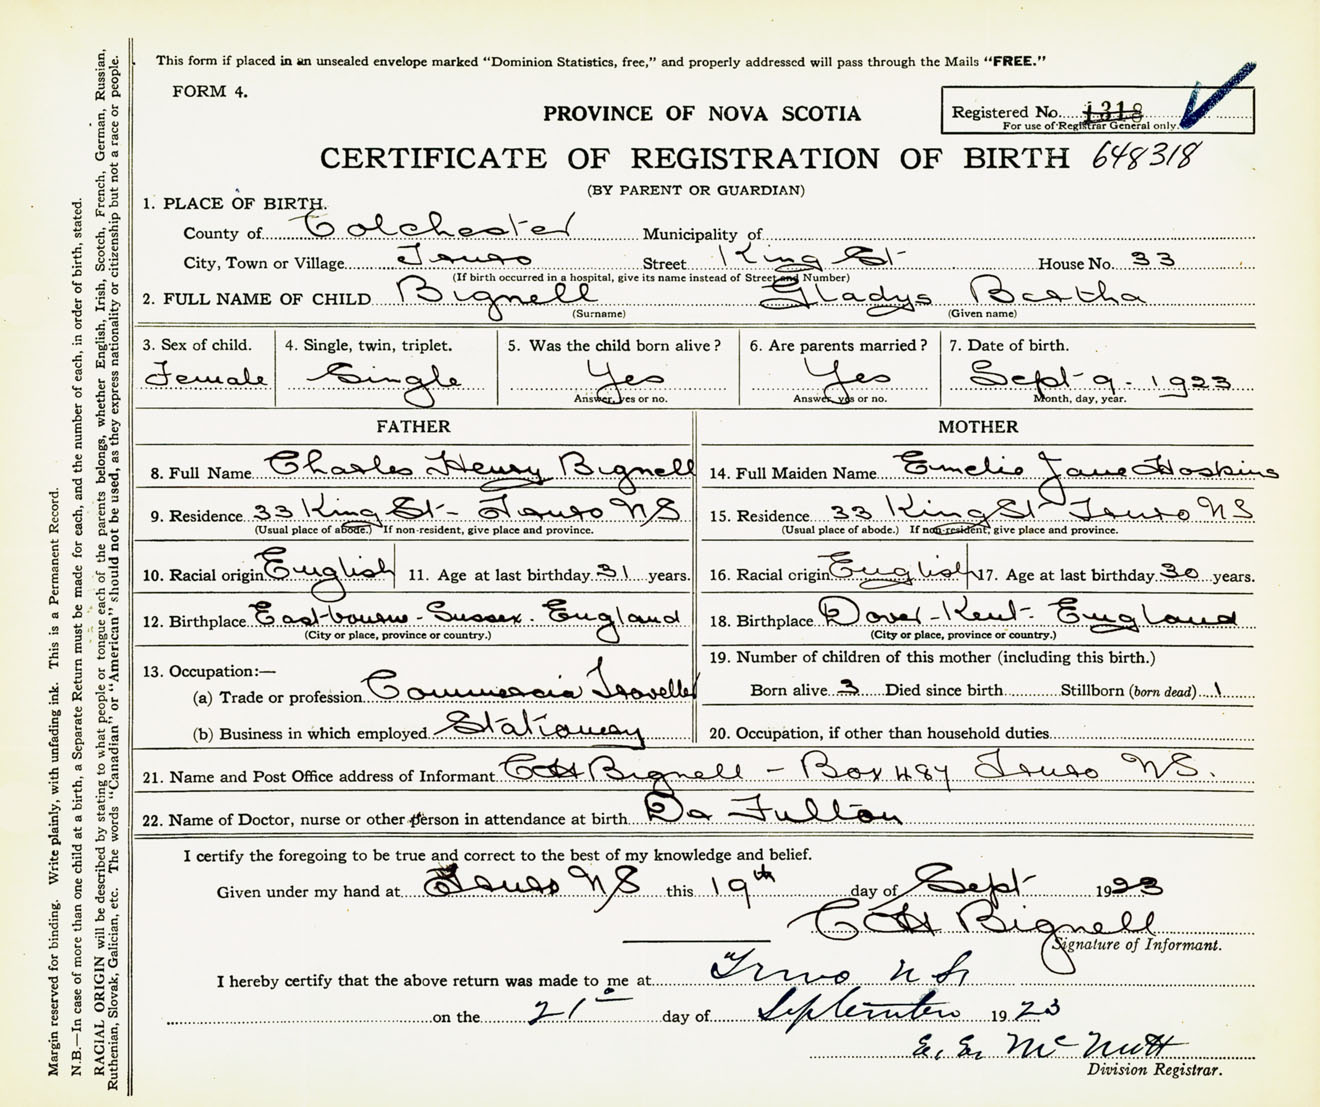 This form if placed in an unsealed envelope marked "Dominion Statistics, free," and properly addressed will pass through the Mails "FREE."
FORM 4.
PROVINCE OF NOVA SCOTIA
Registered No. 1318
For use of Registrar General only.
CERTIFICATE OF REGISTRATION OF BIRTH 648318
(BY PARENT OR GUARDIAN)
1. PLACE OF BIRTH.
County of Colchester Municipality of
City, Town or Village Truro Street King St House No. 33
(If birth occurred in a hospital, give its name instead of Street and Number)
2. FULL NAME OF CHILD Bignell Gladys Bertha
(Surname) (Given name)
3. Sex of child. 4. Single, twin, triplet. 5. Was the child born alive? 6. Are parents married? 7. Date of birth.
Female Single Yes Yes Sept 9. 1923
Answer, yes or no. Answer, yes or no. Month, day, year.
FATHER MOTHER
8. Full Name Charles Henry Bignell 14. Full Maiden Name Emelie Jane Hoskins
9. Residence 33 King St - Truro NS 15. Residence 33 King St Truro NS
(Usual place of abode.) If non-resident, give place and province. (Usual place of abode.) If non-resident, give place and province.
10. Racial origin English 11. Age at last birthday 31 years. 16. Racial origin English 17. Age at last birthday 30 years.
12. Birthplace Eastbourne - Sussex. England 18. Birthplace Dover - Kent - England
(City or place, province or country.) (City or place, province or country.)
13. Occupation:— 19. Number of children of this mother (including this birth.)
(a) Trade or profession Commercia Traveller Born alive 3 Died since birth Stillborn (born dead) 1
(b) Business in which employed Stationery 20. Occupation, if other than household duties
21. Name and Post Office address of Informant CH Bignell - Box 484 Truro NS.
22. Name of Doctor, nurse or other person in attendance at birth Dr Fulton
I certify the foregoing to be true and correct to the best of my knowledge and belief.
Given under my hand at Truro NS this 19th day of Sept 1923
CH Bignell
Signature of Informant.
I hereby certify that the above return was made to me at Truro N S.
on the 21st day of September 1923
E. E. McNutt
Division Registrar.
Margin reserved for binding. Write plainly, with unfading ink. This is a Permanent Record.
N.B.—In case of more than one child at a birth, a Separate Return must be made for each, and the number of each, in order of birth, stated.
RACIAL ORIGIN will be described by stating to what people or tongue each of the parents belongs, whether English, Irish, Scotch, French, German, Russian,
Ruthenian, Slovak, Galician, etc. The words "Canadian" or "American" should not be used, as they express nationality or citizenship but not a race or people.